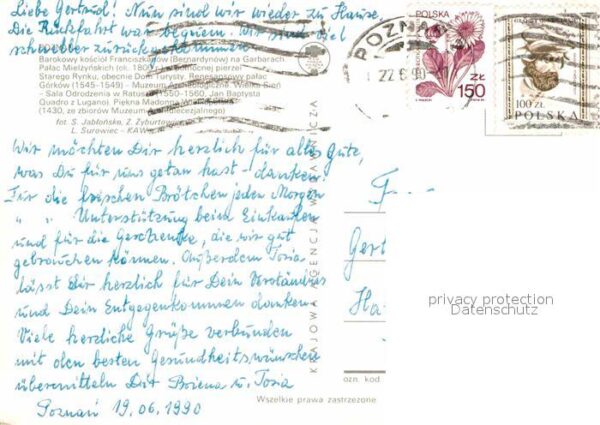 Liebe Gertrud! Nun sind wir wieder zu Hause.
Die Rückfahrt war bequem, wir sind viel
schneller zurückgekommen.
Barokowy kościół Franciszkanów (Bernardynów) na Garbarach.
Pałac Mielżyńskich (ok. 1800
Starego Rynku, obecnie Dom Turysty. Renesansowy pałac
Górków (1545-1549) – Muzeum Archeologiczne. Wielka Sień
– Sala Odrodzenia w Ratuszu (1550-1560, Jan Baptysta
Quadro z Lugano). Piękna Madonna
(1430, ze zbiorów Muzeum Archidiecezjalnego)
fot. S. Jabłońska, Z. Żyburtowicz
L. Surowiec – KAW
Wir möchten Dir herzlich für alles Gute,
was Du für uns getan hast – danken.
Für die frischen Brötchen jeden Morgen
" " Unterstützung beim Einkaufen
und für die Geschenke, die wir gut
gebrauchen können. Außerdem Tosia
lässt Dir herzlich für Dein Verständnis
und Dein Entgegenkommen danken.
Viele herzliche Grüße verbunden
mit den besten Gesundheitswünschen
übermitteln Dir Bożena u. Tosia
Poznań 19.06.1990
KRAJOWA AGENCJA WYDAWNICZA
POZNAŃ
22 6 90
POLSKA
150 ZŁ
100 ZŁ
POLSKA
F...
Gert
Ha
ozn. kod
Wszelkie prawa zastrzeżone
privacy protection
Datenschutz